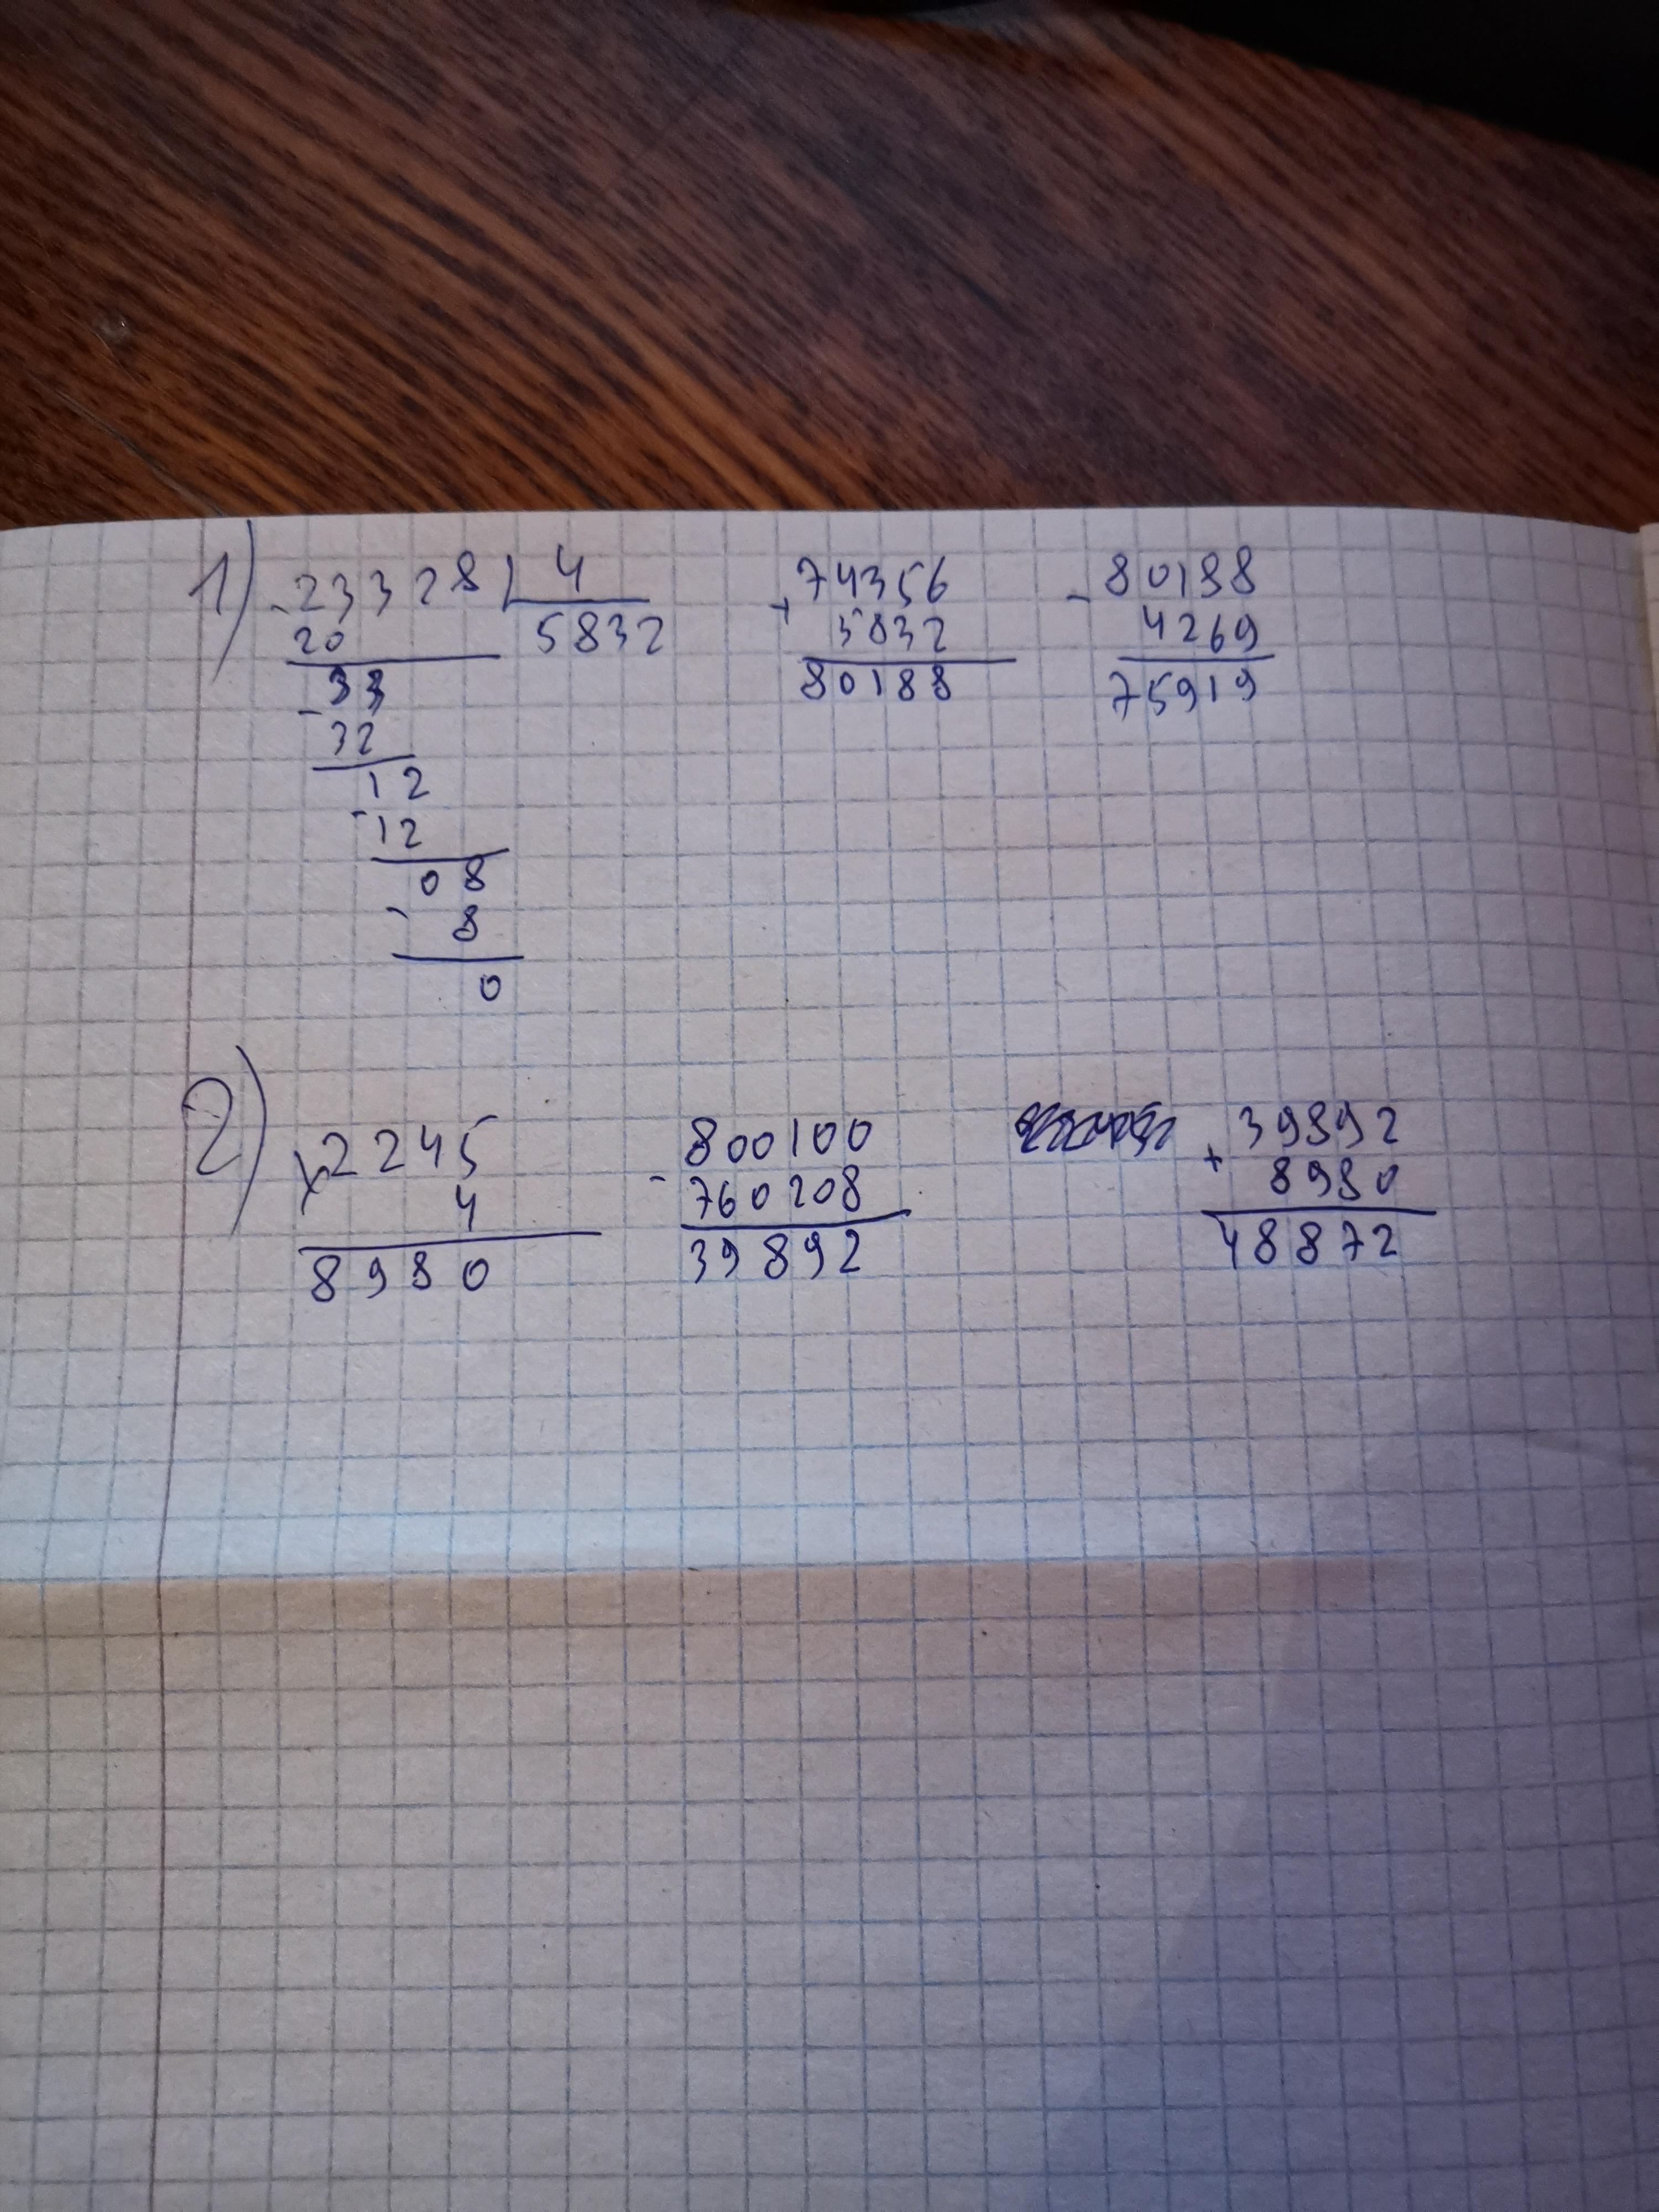 1)
- 23328 | 4
20 5832
33
- 32
12
- 12
08
- 8
0
+ 74356
5832
80188
- 80188
4269
75919
2)
x 2245
4
8980
- 800100
760208
39892
+ 39892
8980
48872